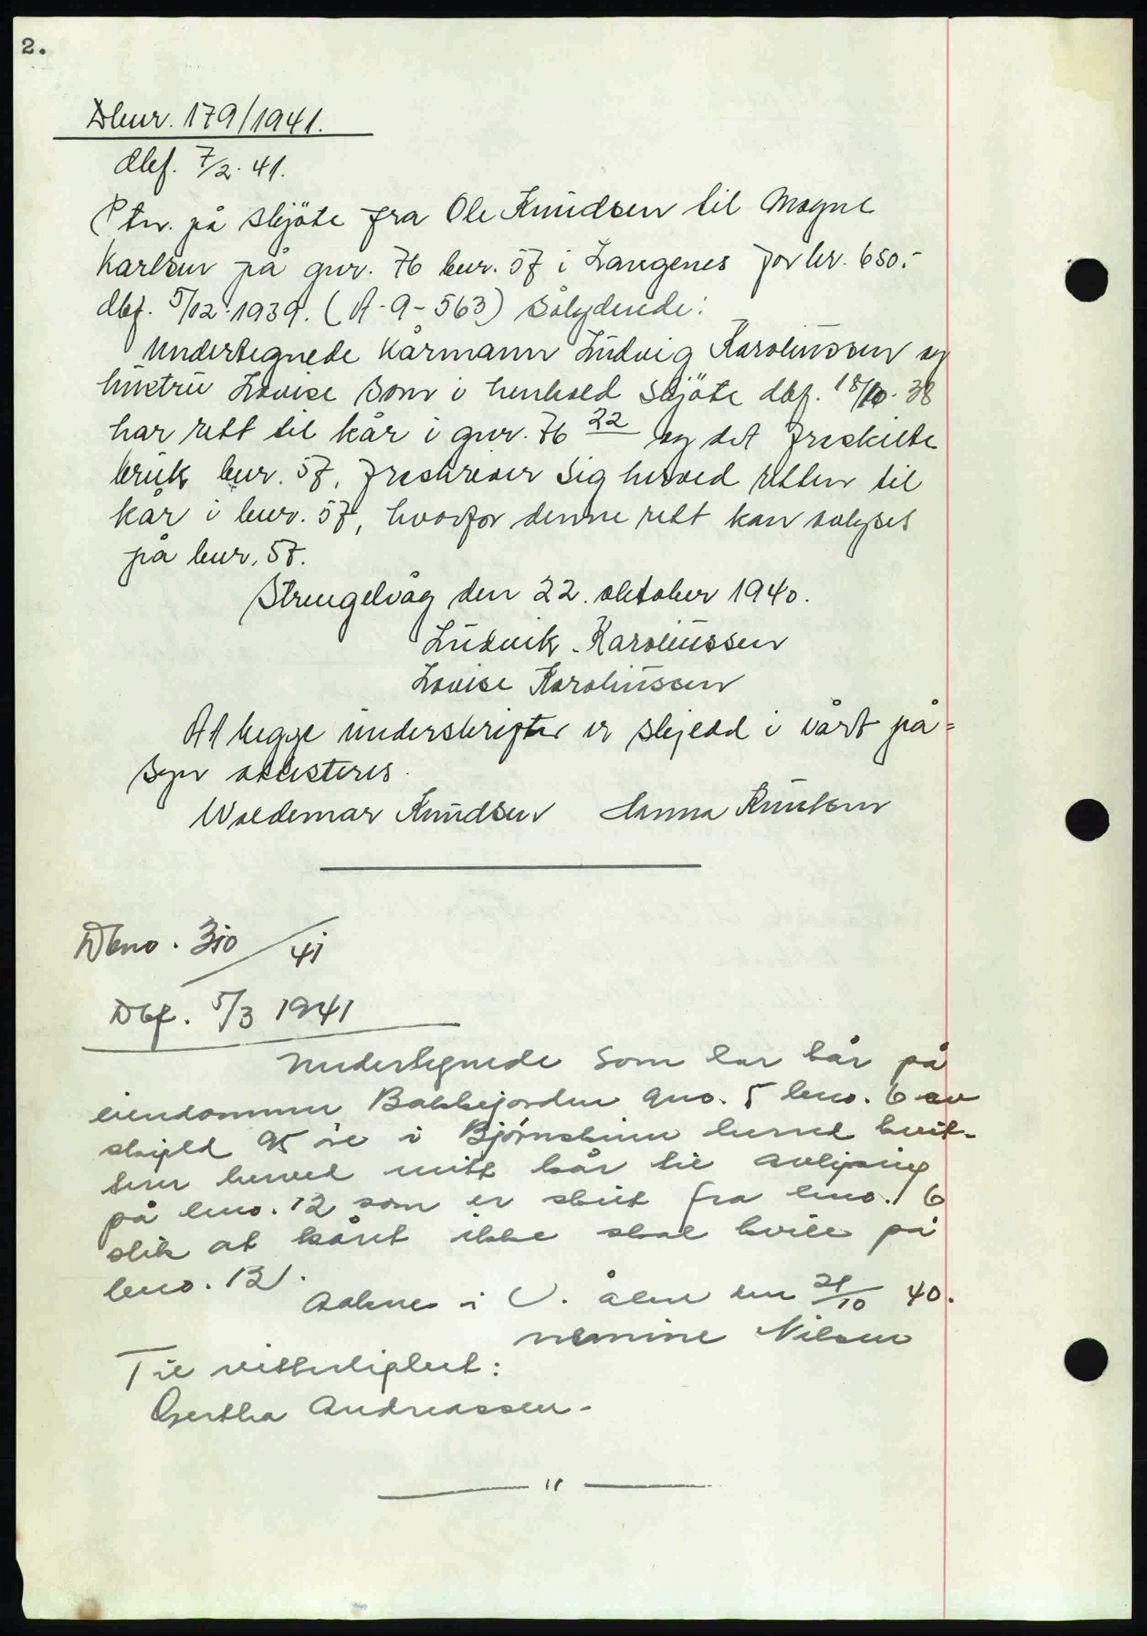 2.
Dbnr. 179/1941.
dbf. 7/2. 41.
Ptn. på skjöte fra Ole Knudsen til Magne
Karlsen på gnr. 76 bnr. 57 i Langenes for kr. 650.-
dbf. 5/12.1939. (A-9-563) sålydende:
Undertegnede kårmann Ludvig Karolinssen og
hustru Lovise som i henhold skjöte dbf. 18/10.38
har rett til kår i gnr. 76 22 og det fraskilte
bruk bnr. 57, fraskriver sig herved retten til
kår i bnr. 57, hvorfor denne rett kan avlyses
på bnr. 57.
Strengelvåg den 22. oktober 1940.
Ludvik Karolinssen
Lovise Karolinssen
At begge underskrifter er skjedd i vårt på-
syn attesteres.
Waldemar Knudsen Hanna Knutsen
Dbno. 310/41
Dbf. 5/3 1941
Undertegnede som har kår på
eiendommen Bakkejorden gno. 5 bno. 6 av
skyld 95 øre i Bjørnskinn herred kvit-
terer herved mitt kår til avlysing
på bno. 12 som er skilt fra bno. 6
slik at kåret ikke skal hvile på
bno. 12.
i V. ålen den 21/10 40.
Nilsen
Til vitterlighet:
Gertha Andreassen.
"